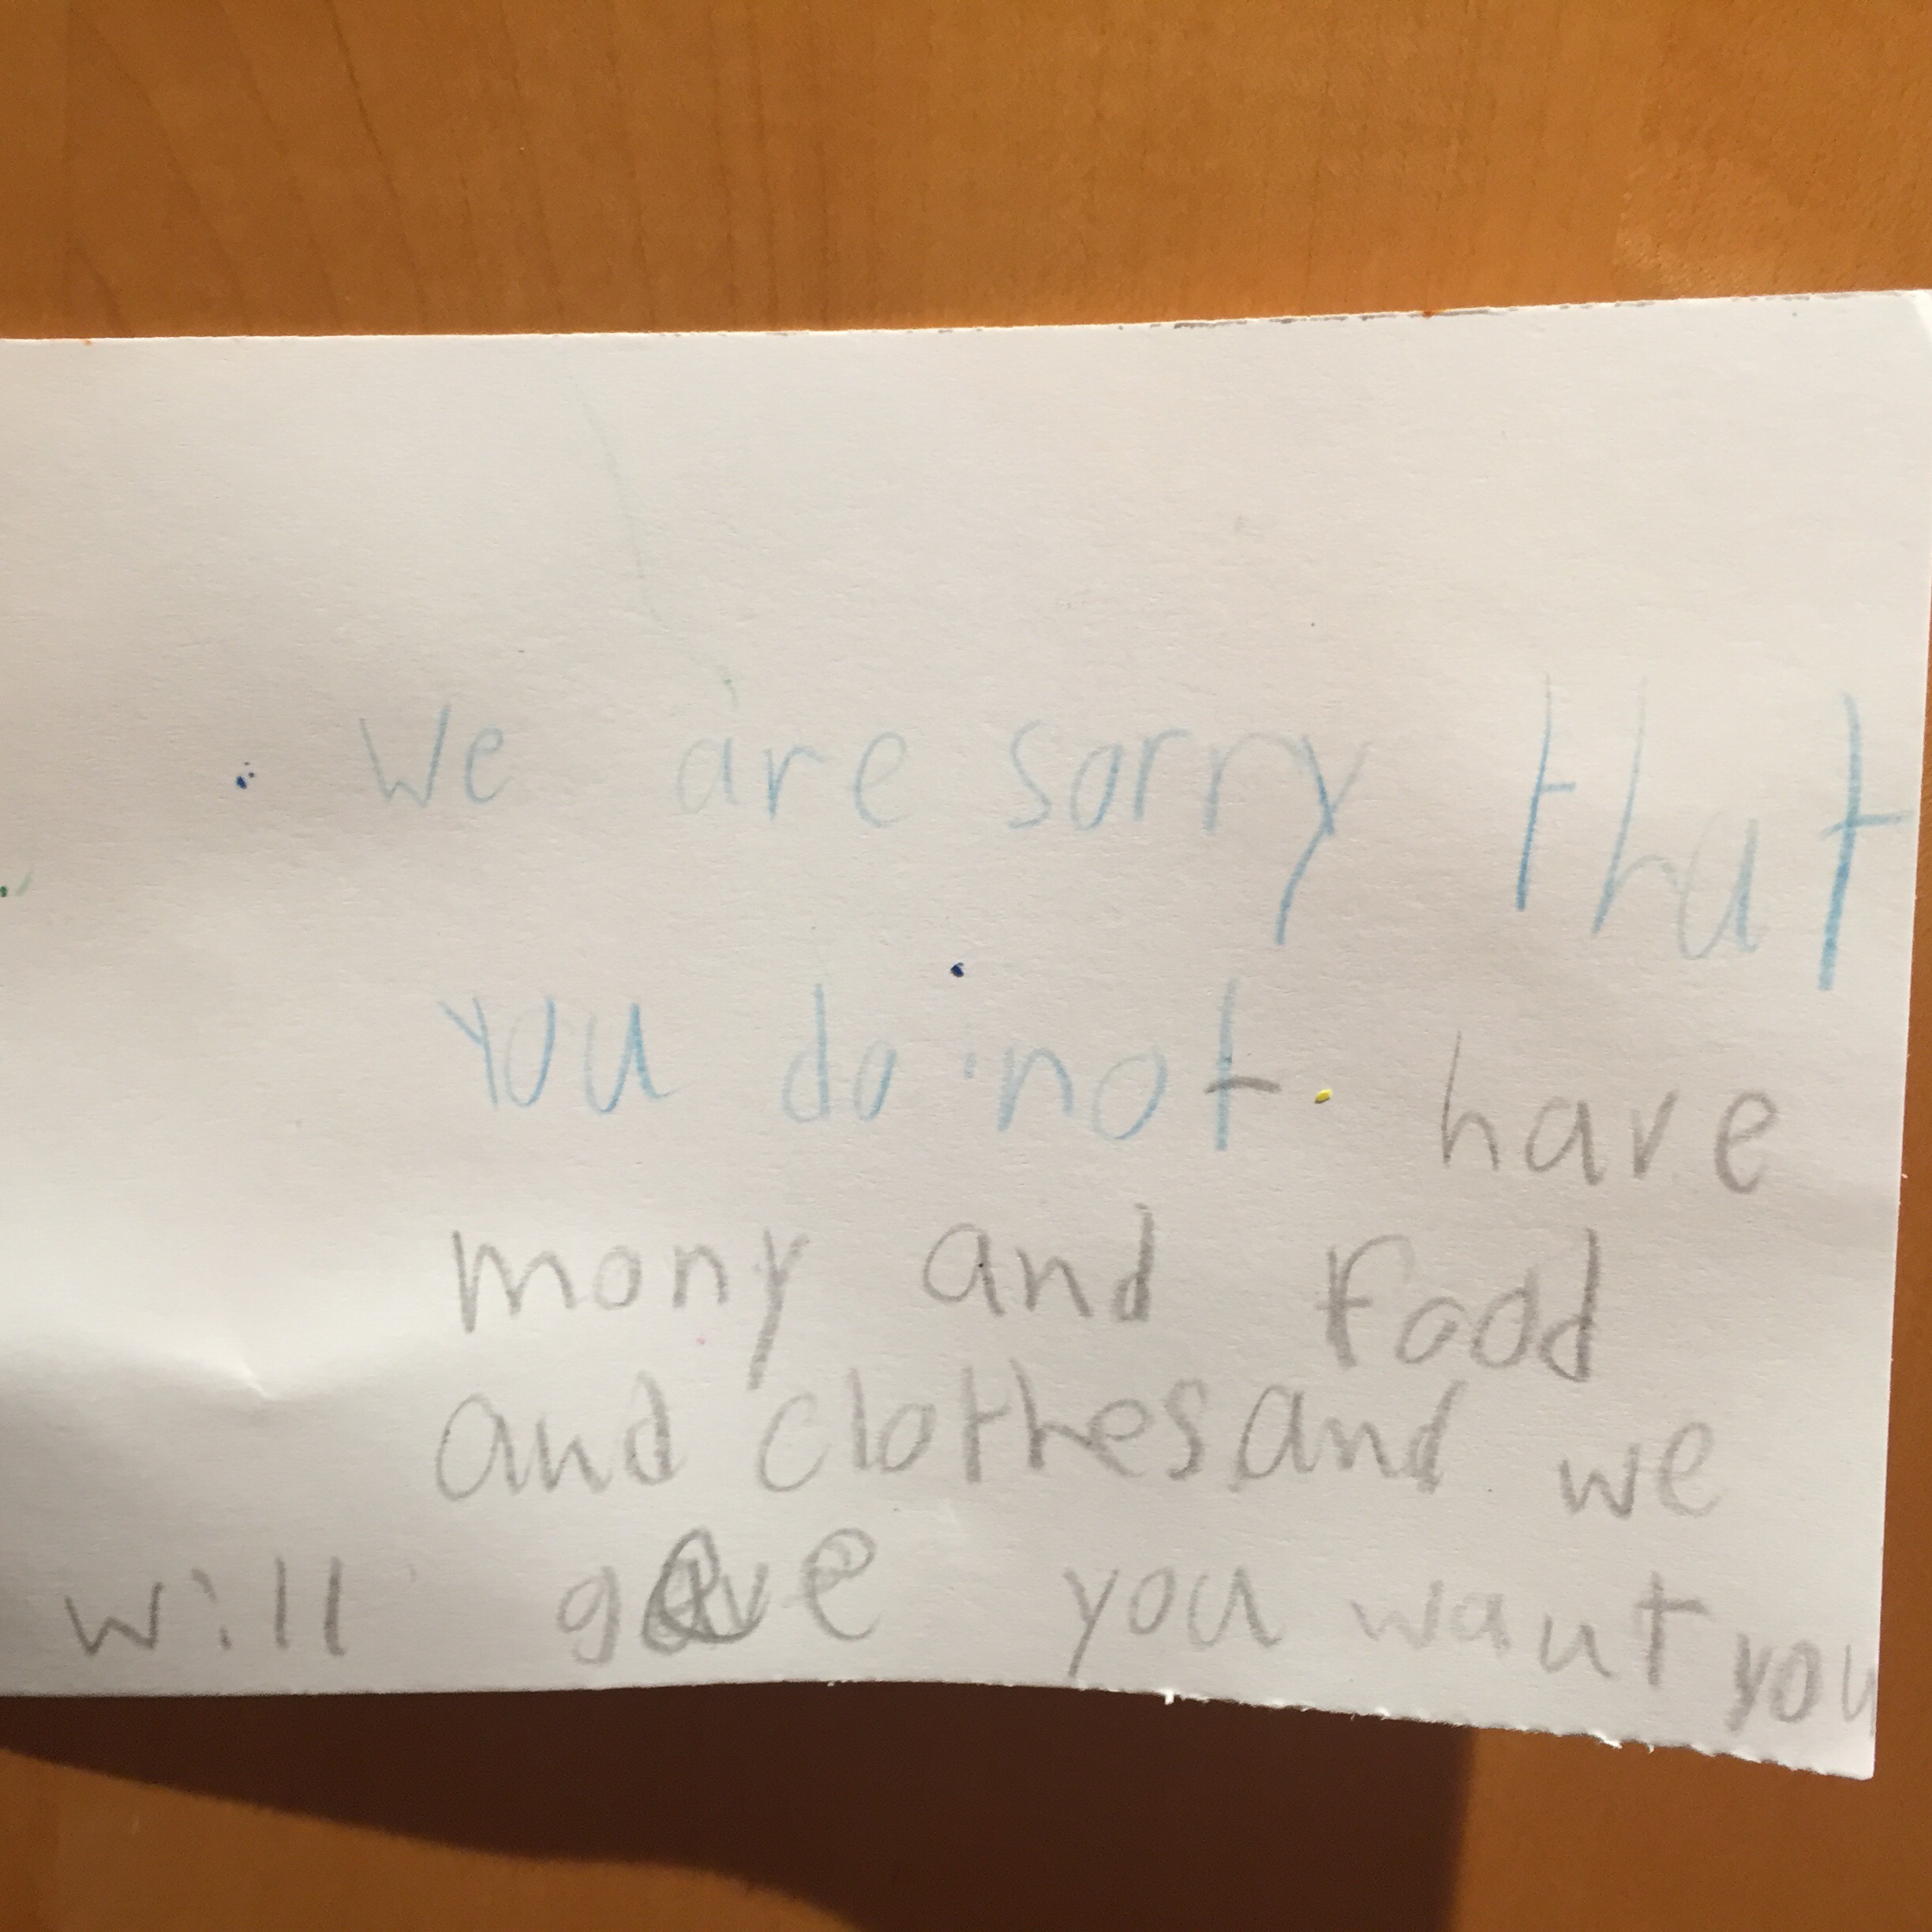 We are sorry that
you do not have
mony and food
and clothes and we
will gave you want you